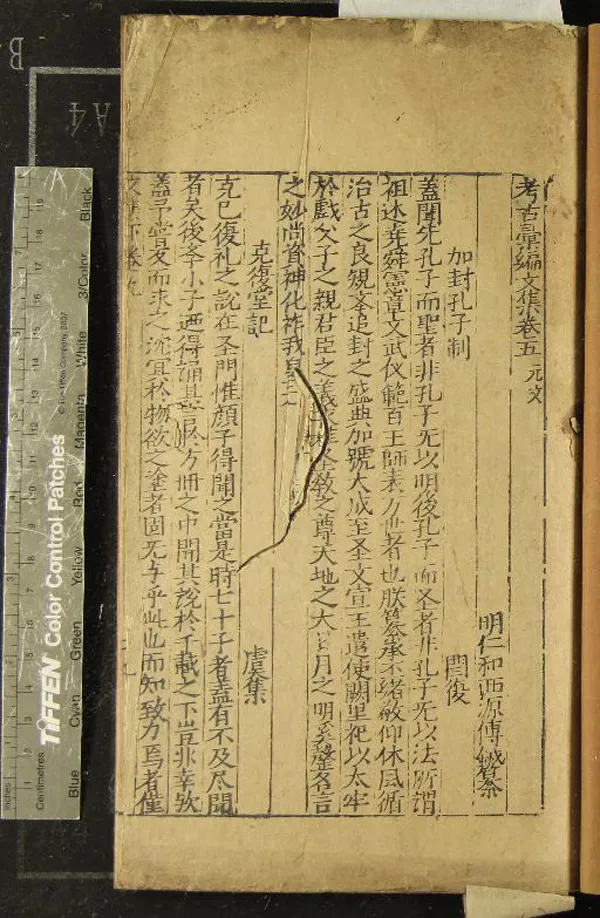 考古彙編文集卷五 元文
明仁和西源傅鑰㑹叅
加封孔子制
閻復
蓋聞先孔子而聖者非孔子无以明後孔子而圣者非孔子无以法所謂
祖述尭舜憲章文武仪範百王師表万世者也朕纂承丕緒敬仰休風循
治古之良規夆追封之盛典加號大成至圣文宣王遣使闕里祀以太牢
於戲父子之親君臣之義 圣教之尊天地之大 月之明奚罄名言
之妙尚資神化祚我皇元
克復堂記
虞集
克己復礼之說在圣門惟顔子得聞之當是時七十子者蓋有不及尽聞
者矣後夆小子廼得誦其言於方冊之中聞其說於千載之下豈非幸欤
蓋予嘗 而求之沉冥於物欲之塗者固无与乎此也而知致力焉者僅
Inches
Centimetres
TIFFEN Color Control Patches
© The Tiffen Company, 2007
Blue Cyan Green Yellow Red Magenta White 3/Color Black
B
A4